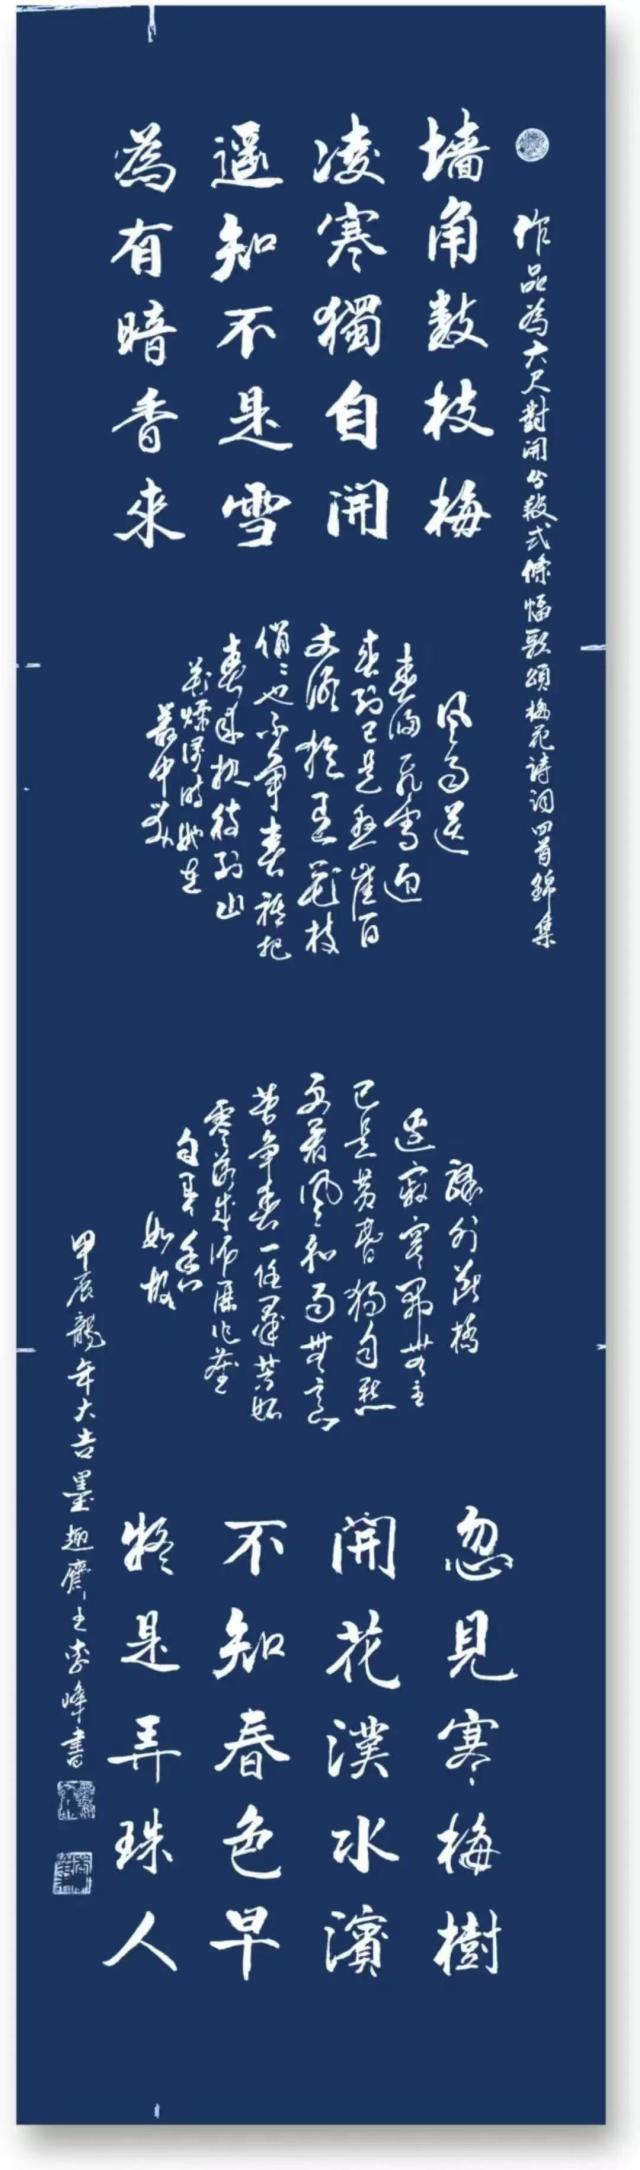 作品為六尺對開分段式條幅歌頌梅花詩詞四首錦集
墙角數枝梅
凌寒獨自開
遥知不是雪
為有暗香來
風雨送
春歸飛雪迎
春到已是懸崖百
丈冰猶有花枝
俏〻也不爭春祇把
春來報待到山
花爛漫時她在
叢中笑
驛外斷橋
邊寂寞開無主
已是黃昏獨自愁
更著風和雨無意
苦爭春一任羣芳妒
零落成泥碾作塵
只有香
如故
忽見寒梅樹
開花漢水濱
不知春色早
疑是弄珠人
甲辰龍年大吉墨趣齋主李峰書